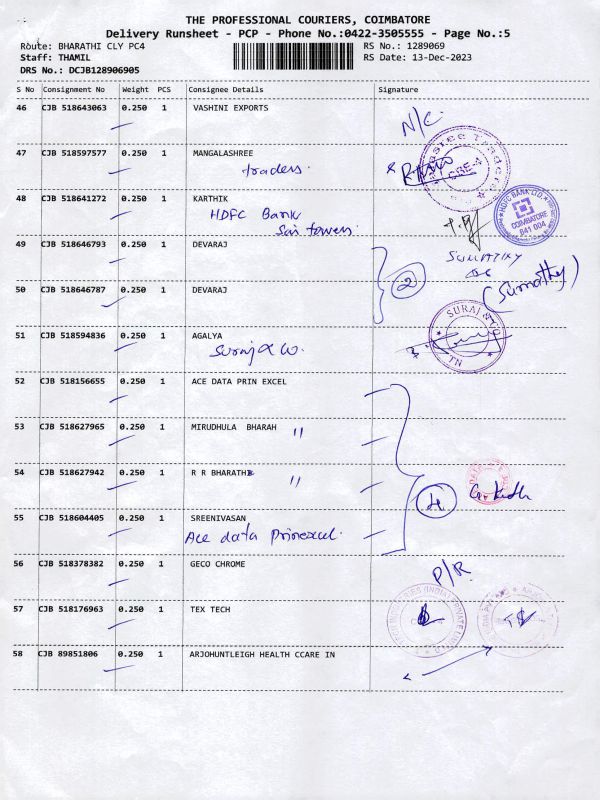 THE PROFESSIONAL COURIERS, COIMBATORE
Delivery Runsheet - PCP - Phone No.:0422-3505555 - Page No.:5
Route: BHARATHI CLY PC4 RS No.: 1289069
Staff: THAMIL RS Date: 13-Dec-2023
DRS No.: DCJB128906905
S No Consignment No Weight PCS Consignee Details Signature
46 CJB 518643063 0.250 1 VASHINI EXPORTS
N/C
47 CJB 518597577 0.250 1 MANGALASHREE
traders.
48 CJB 518641272 0.250 1 KARTHIK
HDFC Bank
Sai towers
HDFC BANK LTD.
COIMBATORE
641 004
49 CJB 518646793 0.250 1 DEVARAJ
SUMATHY
2
(Sumathy)
50 CJB 518646787 0.250 1 DEVARAJ
51 CJB 518594836 0.250 1 AGALYA
Suraj & Co.
SURAJ & CO
TN
52 CJB 518156655 0.250 1 ACE DATA PRIN EXCEL
53 CJB 518627965 0.250 1 MIRUDHULA BHARAH "
54 CJB 518627942 0.250 1 R R BHARATHI "
4
55 CJB 518604405 0.250 1 SREENIVASAN
Ace data prinexcel.
56 CJB 518378382 0.250 1 GECO CHROME
P/R
57 CJB 518176963 0.250 1 TEX TECH
58 CJB 89851806 0.250 1 ARJOHUNTLEIGH HEALTH CCARE IN